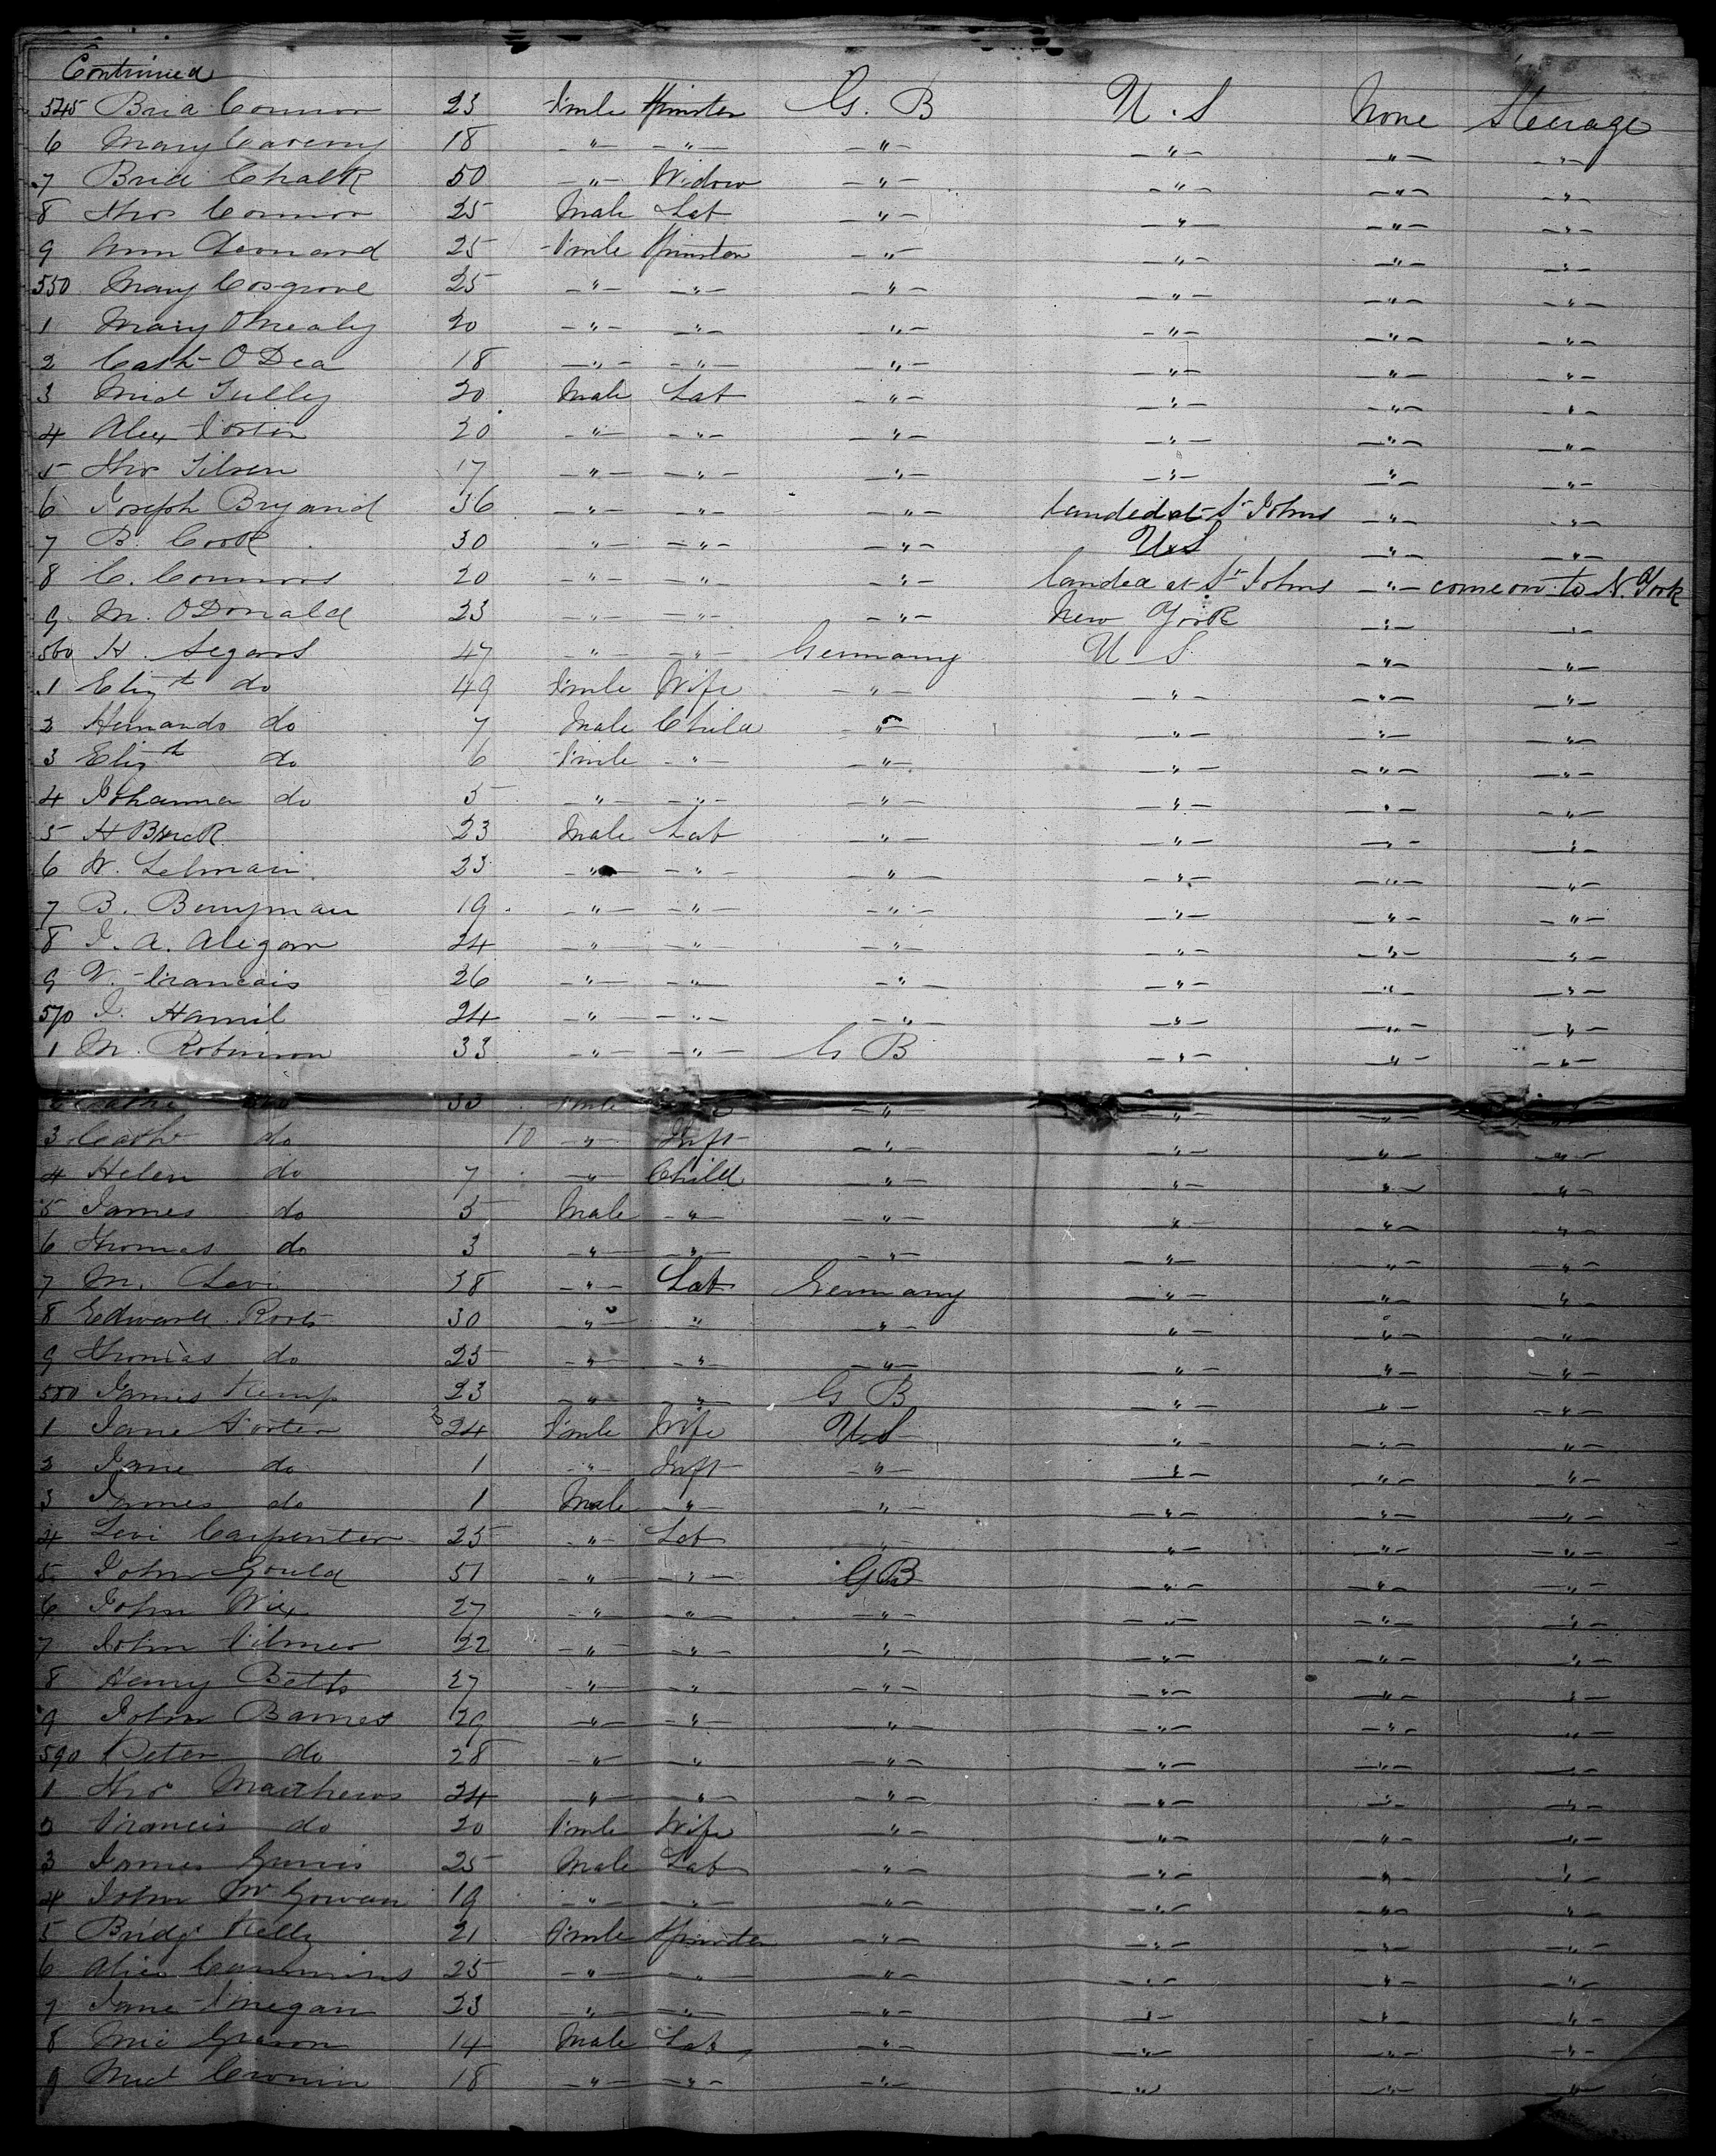 Continued
545 Brid Connor 23 Fmle Spinster G. B U. S None Steerage
6 Mary 18 -"- -"- -"- -"- -"- -"-
7 Brid Chalk 50 -"- Widow -"- -"- -"- -"-
8 Thos Connor 25 Male Lab -"- -"- -"- -"-
9 Ann Leonard 25 Fmle Spinster -"- -"- -"- -"-
550 Mary Cosgrove 25 -"- -"- -"- -"- -"- -"-
1 Mary OMealy 20 -"- -"- -"- -"- -"- -"-
2 Cath ODea 18 -"- -"- -"- -"- -"- -"-
3 Mich Tully 20 Male Lab -"- -"- -"- -"-
4 Alex 20 -"- -"- -"- -"- -"- -"-
5 Thos 17 -"- -"- -"- -"- -"- -"-
6 Joseph 36 -"- -"- -"- Landed at St Johns -"- -"-
7 B. Cook 30 -"- -"- -"- U S -"- -"-
8 C. Connors 20 -"- -"- -"- Landed at St Johns -"- come on to N. York
9 M. ODonald 23 -"- -"- -"- New York -"- -"-
560 H. Segars 47 -"- -"- Germany U S -"- -"-
1 Elizth do 49 Fmle Wife -"- -"- -"- -"-
2 Hernando do 7 Male Child -"- -"- -"- -"-
3 Elizth do 6 Fmle -"- -"- -"- -"- -"-
4 Johanna do 5 -"- -"- -"- -"- -"- -"-
5 H 23 Male Lab -"- -"- -"- -"-
6 W. 23 -"- -"- -"- -"- -"- -"-
7 B. Berryman 19 -"- -"- -"- -"- -"- -"-
8 J. A. 24 -"- -"- -"- -"- -"- -"-
9 V. Francais 26 -"- -"- -"- -"- -"- -"-
570 J. Hamil 24 -"- -"- -"- -"- -"- -"-
1 M. Robinson 33 -"- -"- G B -"- -"- -"-
33 Fmle -"- -"- -"- -"-
3 Cath do 10 -"- Inft -"- -"- -"- -"-
4 Helen do 7 -"- Child -"- -"- -"- -"-
5 James do 5 Male -"- -"- -"- -"- -"-
6 Thomas do 3 -"- -"- -"- -"- -"- -"-
7 M. Levi 38 -"- Lab Germany -"- -"- -"-
8 Edward Roots 30 -"- " -"- -"- -"- -"-
9 Thomas do 25 -"- -"- -"- -"- -"- -"-
580 James Kemp 23 -"- " G B -"- -"- -"-
1 Jane Porter 24 Fmle Wife U S -"- -"- -"-
2 Jane do 1 -"- Inft -"- -"- -"- -"-
3 James do 1 Male -"- -"- -"- -"- -"-
4 Levi Carpenter 25 -"- Lab -"- -"- -"-
5 John Gould 51 -"- -"- G B -"- -"- -"-
6 John Wix 27 -"- -"- -"- -"- -"- -"-
7 John Filmer 22 -"- -"- -"- -"- -"- -"-
8 Henry Betts 27 -"- -"- -"- -"- -"- -"-
9 John Barnes 29 -"- -"- -"- -"- -"- -"-
590 Peter do 28 -"- " -"- -"- -"- -"-
1 Thos Matthews 24 -"- -"- -"- -"- -"- -"-
2 Francis do 20 Fmle Wife -"- -"- -"- -"-
3 James 25 Male Lab -"- -"- -"- -"-
4 John McGowan 19 -"- -"- -"- -"- -"- -"-
5 Bridgt Kelly 21 Fmle Spinster -"- -"- -"- -"-
6 Alice Cummins 25 -"- -"- -"- -"- -"- -"-
7 Jane Finegan 23 -"- -"- -"- -"- -"- -"-
8 14 Male Lab -"- -"- -"- -"-
9 Mich Cronin 18 -"- -"- -"- -"- -"- -"-